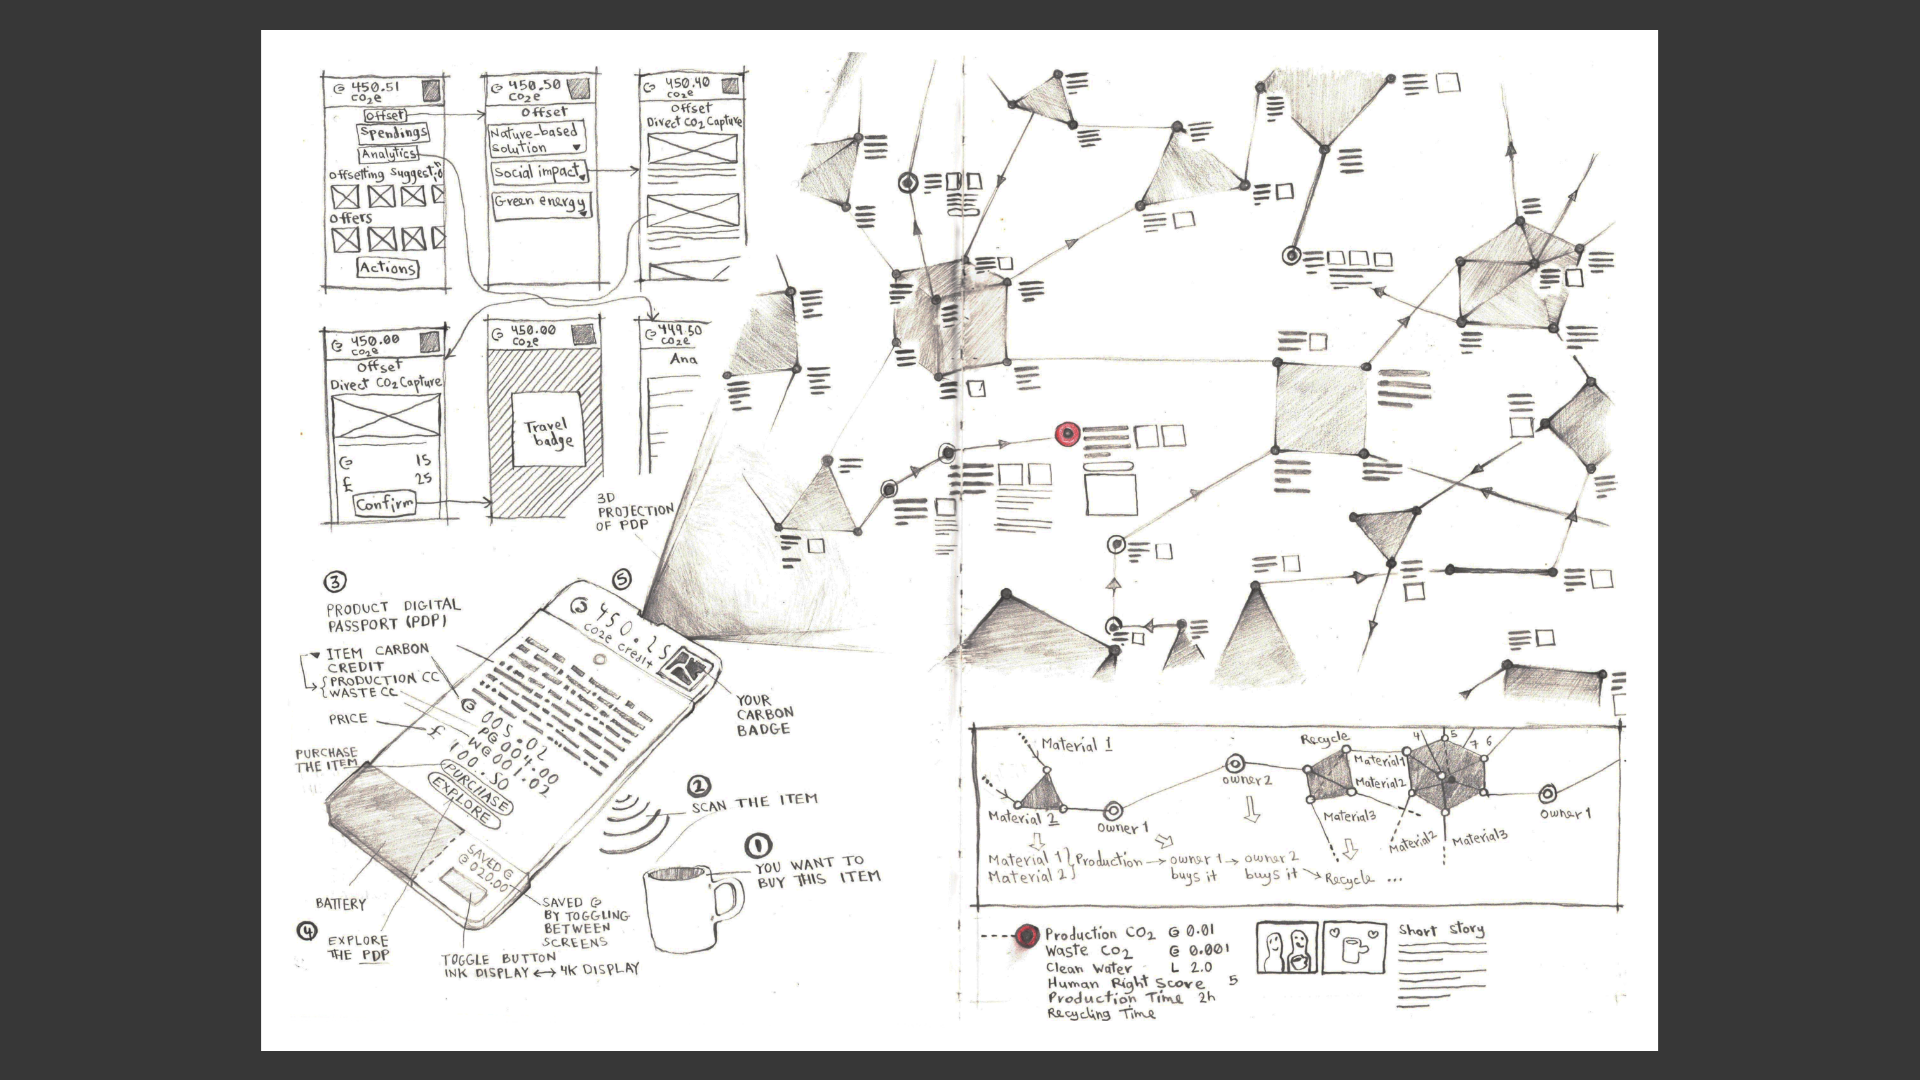 450.51
co2e
Offset
Spendings
Analytics
Offsetting Suggestion
Offers
Actions
450.50
co2e
Offset
Nature-based
solution
Social impact
Green energy
450.40
co2e
Offset
Direct CO2 Capture
450.00
co2e
Offset
Direct CO2 Capture
15
£ 25
Confirm
450.00
co2e
Travel
badge
449.50
co2e
Ana
3D
PROJECTION
OF PDP
3
PRODUCT DIGITAL
PASSPORT (PDP)
ITEM CARBON
CREDIT
PRODUCTION CC
WASTE CC
PRICE
PURCHASE
THE ITEM
5
450.25
co2e credit
005.02
P 004.00
W 001.02
£ 100.50
PURCHASE
EXPLORE
SAVED
020.00
YOUR
CARBON
BADGE
2
SCAN THE ITEM
1
YOU WANT TO
BUY THIS ITEM
BATTERY
4
EXPLORE
THE PDP
TOGGLE BUTTON
INK DISPLAY ↔ 4K DISPLAY
SAVED
BY TOGGLING
BETWEEN
SCREENS
Material 1
Material 2
owner 1
owner 2
Recycle
Material 1
Material 2
Material 3
4 5 7 6
Material 2
Material 3
owner 1
Material 1
Material 2 } Production → owner 1 → owner 2
buys it buys it → Recycle ...
Production CO2 G 0.01
Waste CO2 G 0.001
Clean Water L 2.0
Human Right Score 5
Production Time 2h
Recycling Time
Short story